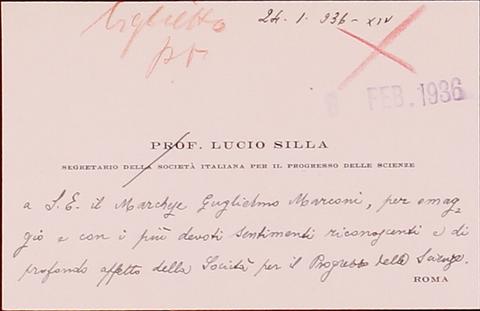 biglietto
24. 1. 936 - XIV
pr
8 FEB. 1936
PROF. LUCIO SILLA
SEGRETARIO DELLA SOCIETÀ ITALIANA PER IL PROGRESSO DELLE SCIENZE
a S. E. il Marchese Guglielmo Marconi, per omag-
gio e con i più devoti sentimenti riconoscenti e di
profondo affetto della Società per il Progresso delle Scienze.
ROMA